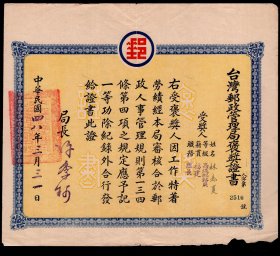 郵
台灣郵政管理局褒獎證書
2516 號
受獎人
姓名
等級
籍貫
職務
右受褒獎人因工作特著
勞績經本局審核合於郵
政人事管理規則第一三四
條第四項之規定應予記
一等功除紀錄外合行發
給證書此證
局長
中華民國四八年三月三一日